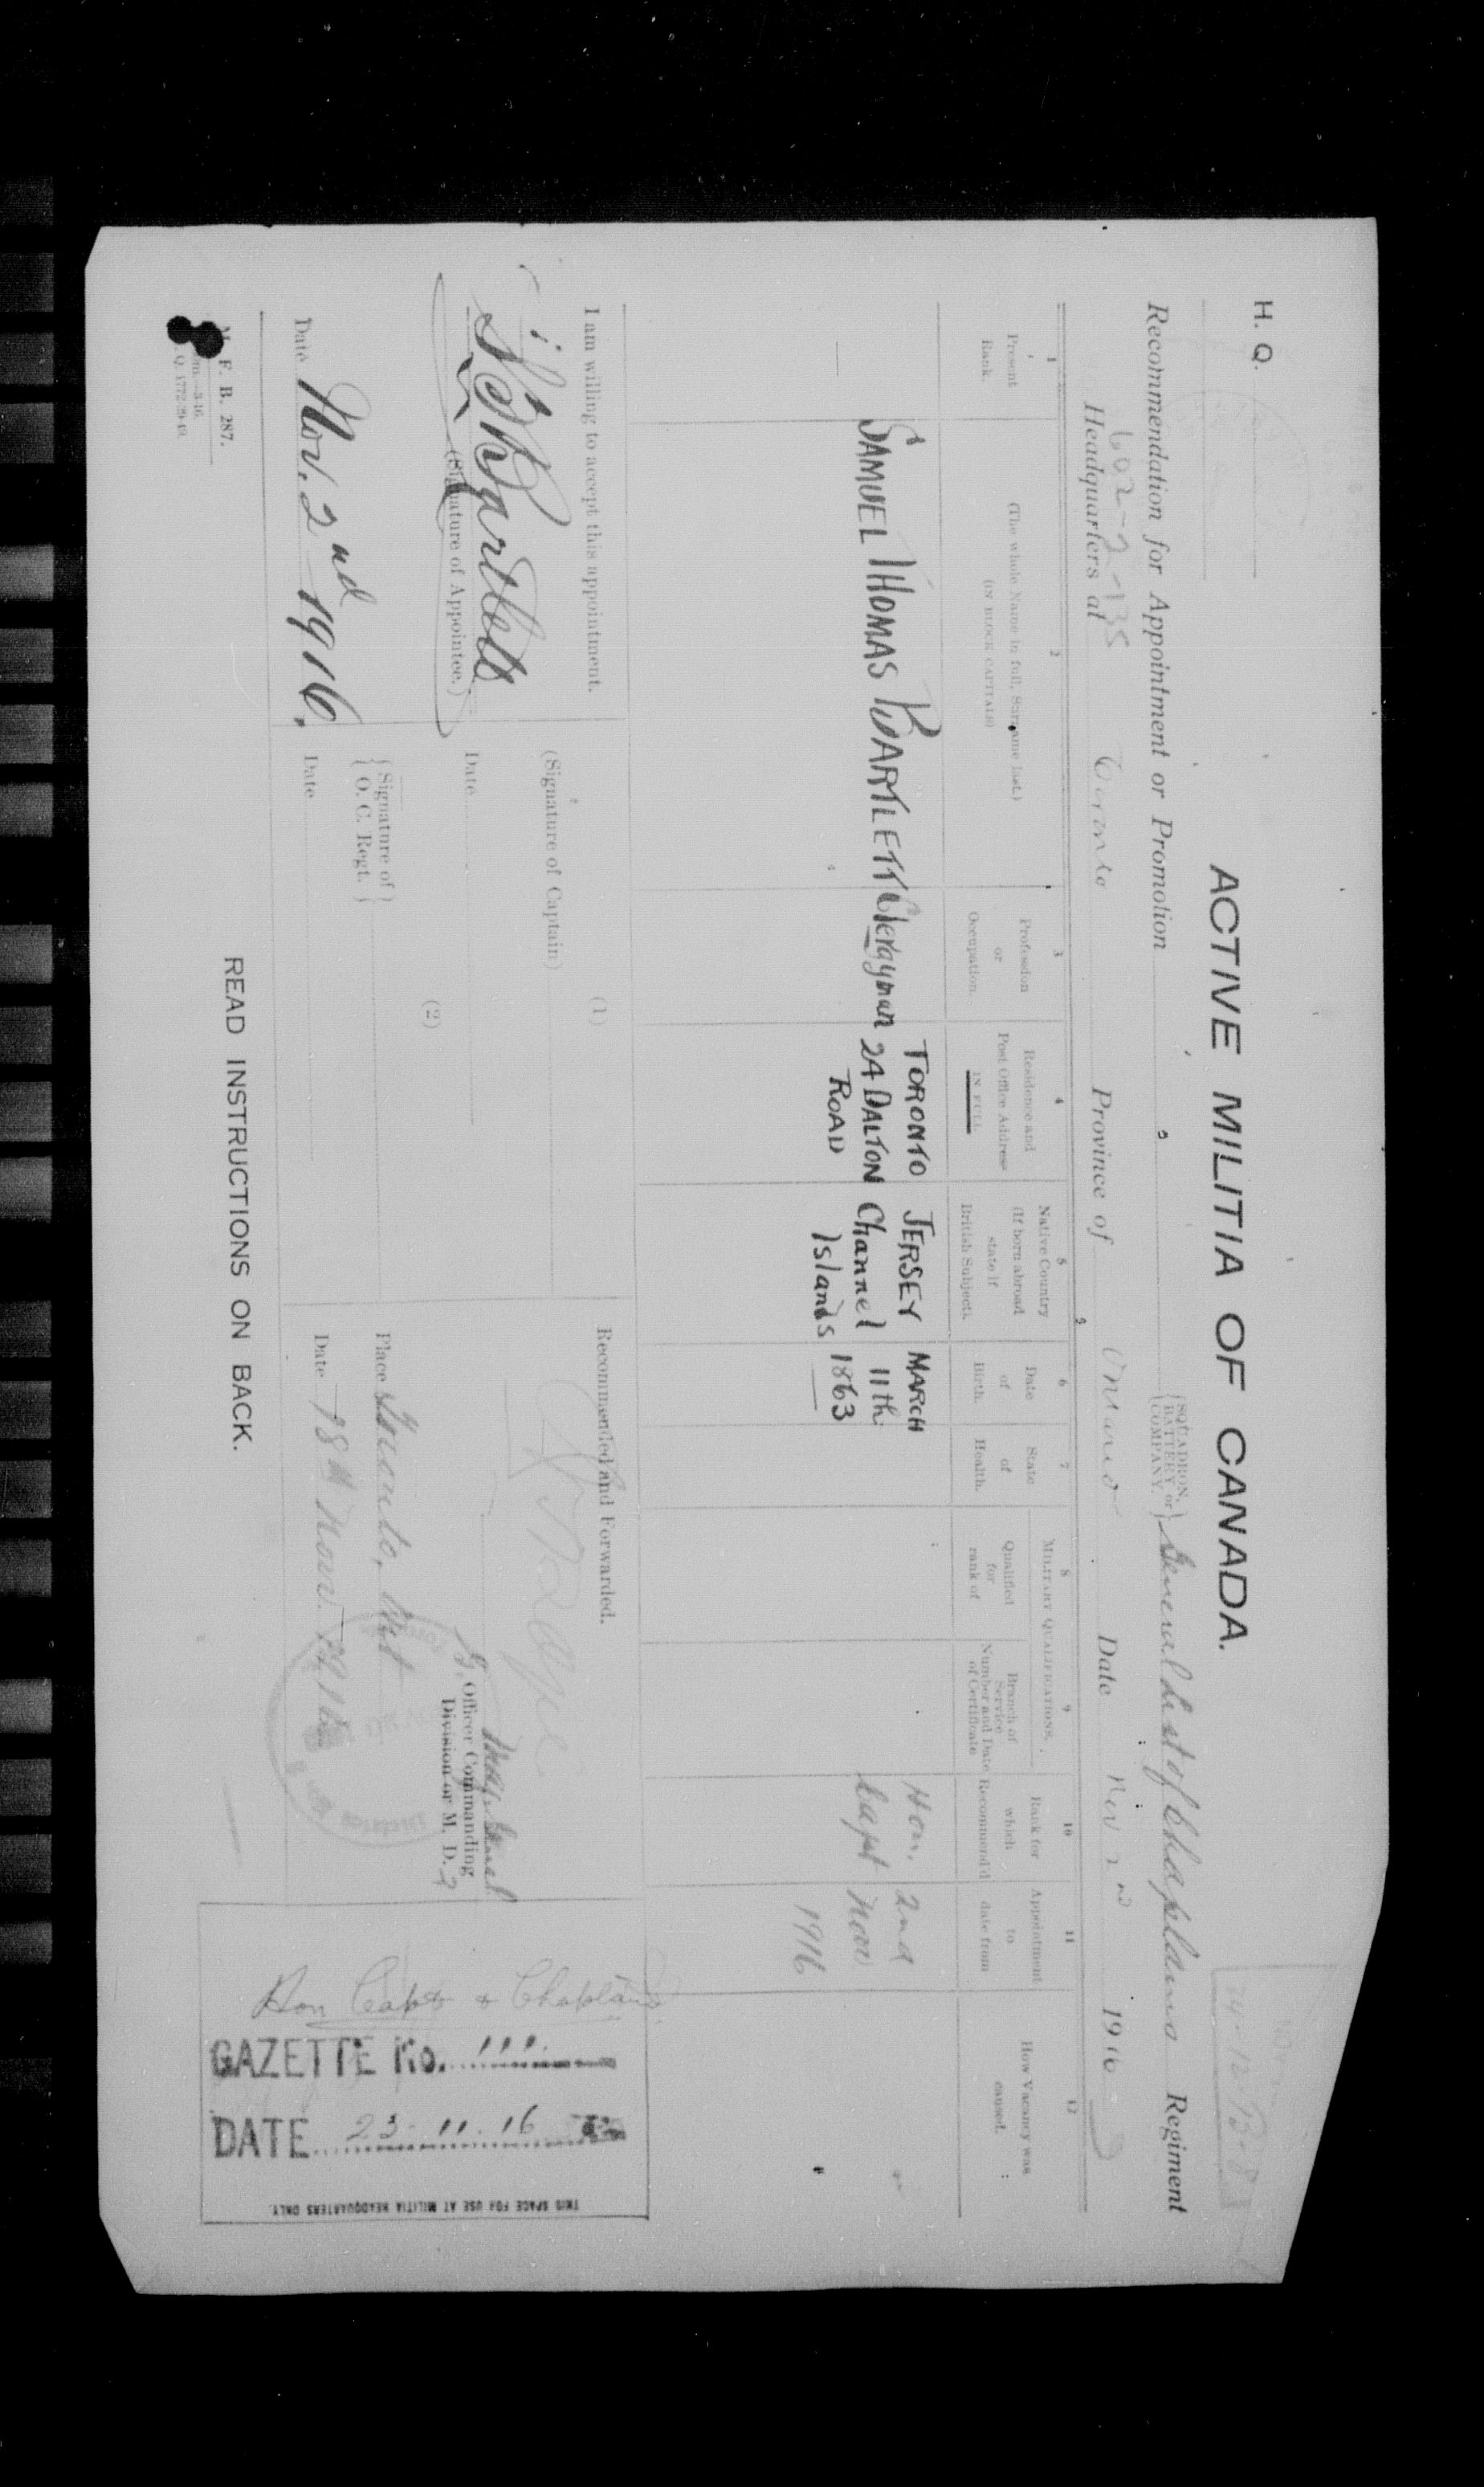 H. Q.
ACTIVE MILITIA OF CANADA.
Recommendation for Appointment or Promotion {SQUADRON, BATTERY or COMPANY.} General List of Chaplains Regiment
602-2-135
Headquarters at Toronto Province of Ontario Date Nov 2nd 1916
1
Present Rank.
2
(The whole Name in full, Surname last.)
(IN BLOCK CAPITALS)
3
Profession or Occupation.
4
Residence and Post Office Address
IN FULL
5
Native Country (If born abroad state if British Subject).
6
Date of Birth.
7
State of Health.
MILITARY QUALIFICATIONS.
8
Qualified for rank of
9
Branch of Service Number and Date of Certificate
10
Rank for which Recommend'd
11
Appointment to date from
12
How Vacancy was caused.
SAMUEL THOMAS BARTLETT
Clergyman
TORONTO
24 DALTON
ROAD
JERSEY
Channel
Islands
MARCH
11th
1863
Hon.
Capt
2nd
Nov
1916
I am willing to accept this appointment.
S.T. Bartlett
(Signature of Appointee.)
Date Nov. 2nd 1916.
(1)
(Signature of Captain)
Date
(2)
{Signature of O. C. Regt.}
Date
Recommended and Forwarded.
Officer Commanding
Division or M. D. 2
Place Toronto, Ont
Date 18th Nov. 1916
Hon Capt & Chaplain
GAZETTE No.
DATE 23-11-16
THIS SPACE FOR USE AT MILITIA HEADQUARTERS ONLY.
M. F. B. 287.
Q. 1772-39-49.
READ INSTRUCTIONS ON BACK.